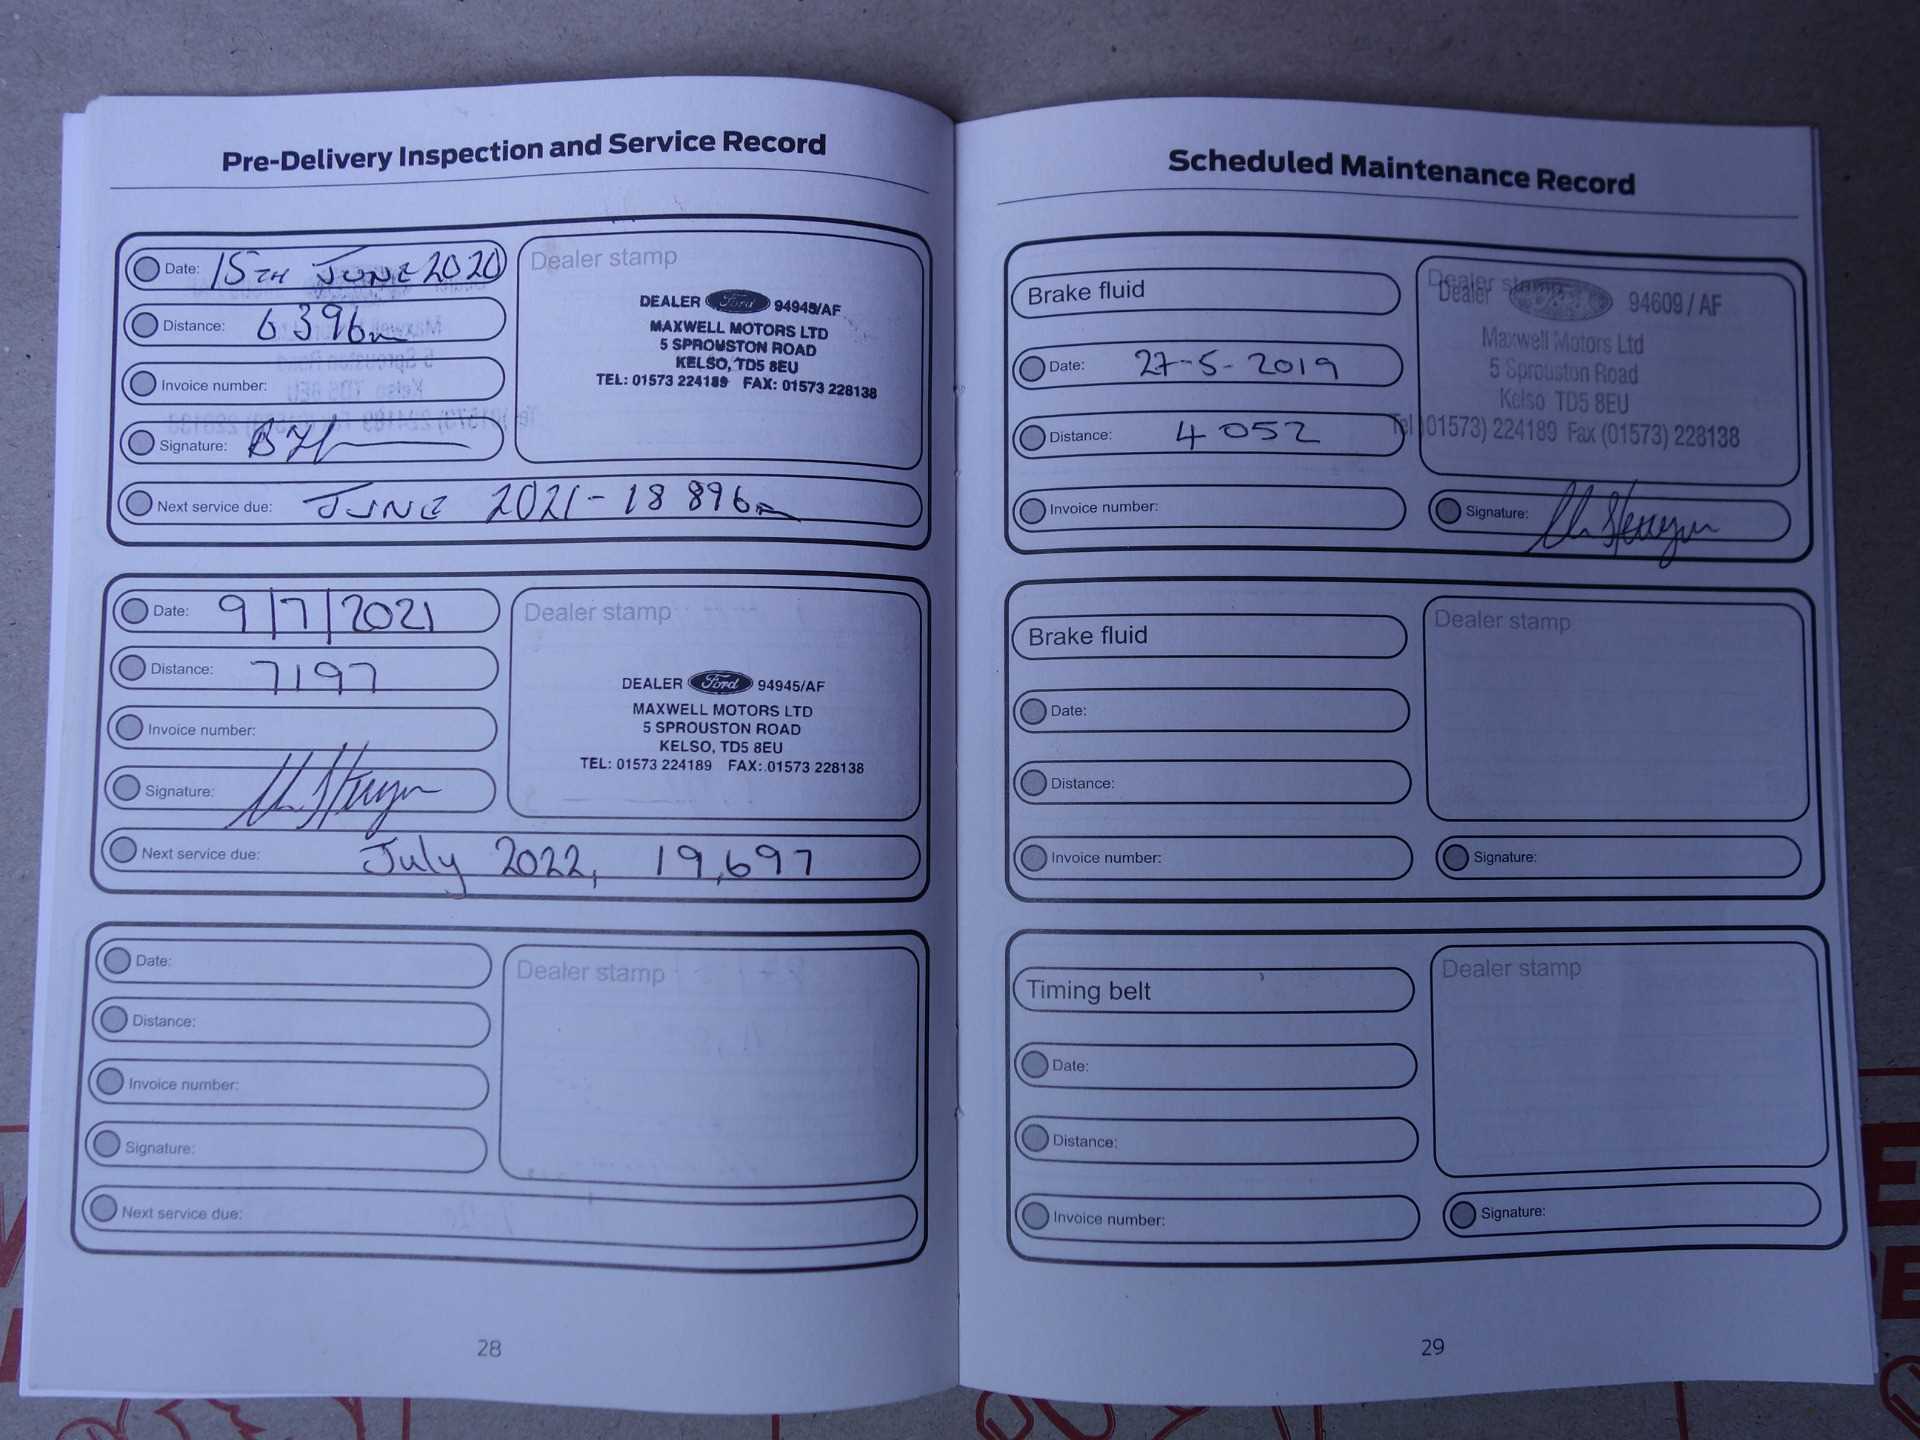 Pre-Delivery Inspection and Service Record
Date: 15TH JUNE 2020
Distance: 6396m
Invoice number:
Signature:
Next service due: JUNE 2021 - 18 896m
Dealer stamp
DEALER Ford 94945/AF
MAXWELL MOTORS LTD
5 SPROUSTON ROAD
KELSO, TD5 8EU
TEL: 01573 224189 FAX: 01573 228138
Date: 9/7/2021
Distance: 7197
Invoice number:
Signature:
Next service due: July 2022, 19,697
Dealer stamp
DEALER Ford 94945/AF
MAXWELL MOTORS LTD
5 SPROUSTON ROAD
KELSO, TD5 8EU
TEL: 01573 224189 FAX: 01573 228138
Date:
Distance:
Invoice number:
Signature:
Next service due:
Dealer stamp
28
Scheduled Maintenance Record
Brake fluid
Date: 27-5-2019
Distance: 4052
Invoice number:
Dealer stamp
Dealer 94609 / AF
Maxwell Motors Ltd
5 Sprouston Road
Kelso TD5 8EU
Tel (01573) 224189 Fax (01573) 228138
Signature:
Brake fluid
Date:
Distance:
Invoice number:
Dealer stamp
Signature:
Timing belt
Date:
Distance:
Invoice number:
Dealer stamp
Signature:
29